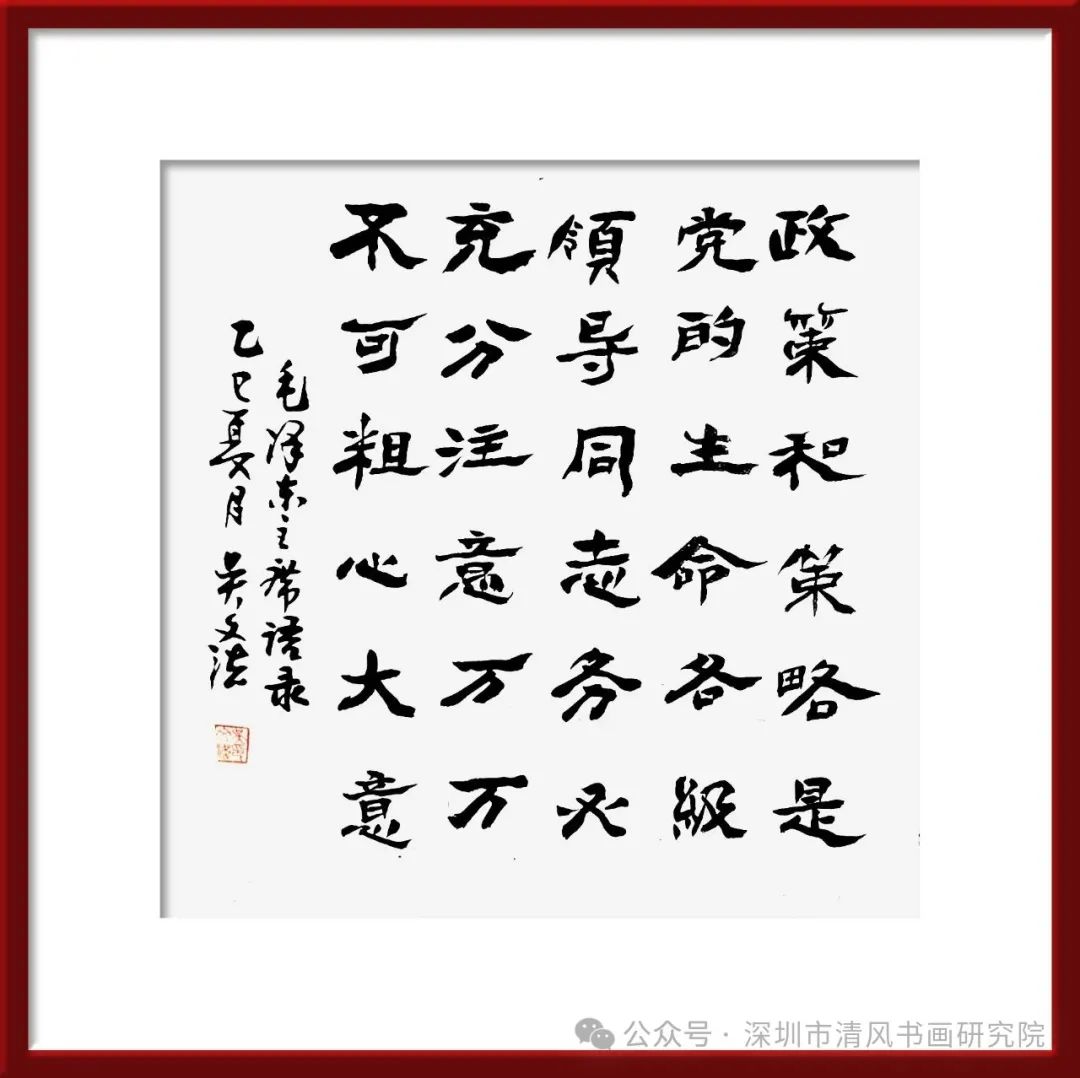 政策和策略是
党的生命各级
领导同志务必
充分注意万万
不可粗心大意
毛泽东主席语录
乙巳夏月 吴文浩
公众号·深圳市清风书画研究院